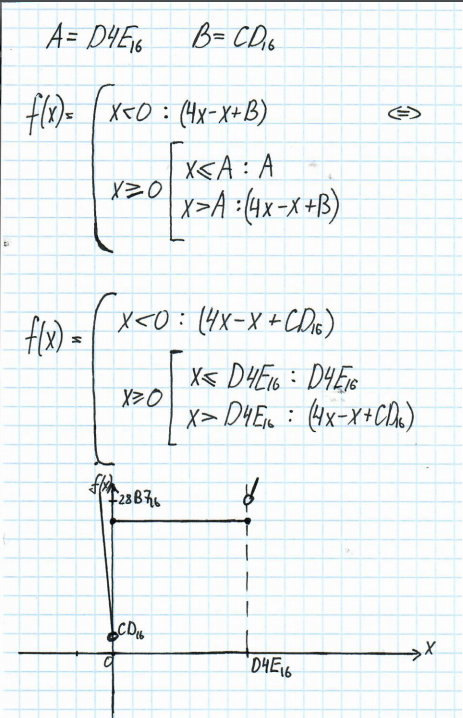 A = D4E₁₆ B = CD₁₆
f(x) = { x<0 : (4x-x+B) ⇔
x⩾0 [ x⩽A : A
x>A : (4x-x+B)
f(x) = { x<0 : (4x-x+CD₁₆)
x⩾0 [ x⩽ D4E₁₆ : D4E₁₆
x> D4E₁₆ : (4x-x+CD₁₆)
f(x)
28B7₁₆
CD₁₆
0
D4E₁₆
x